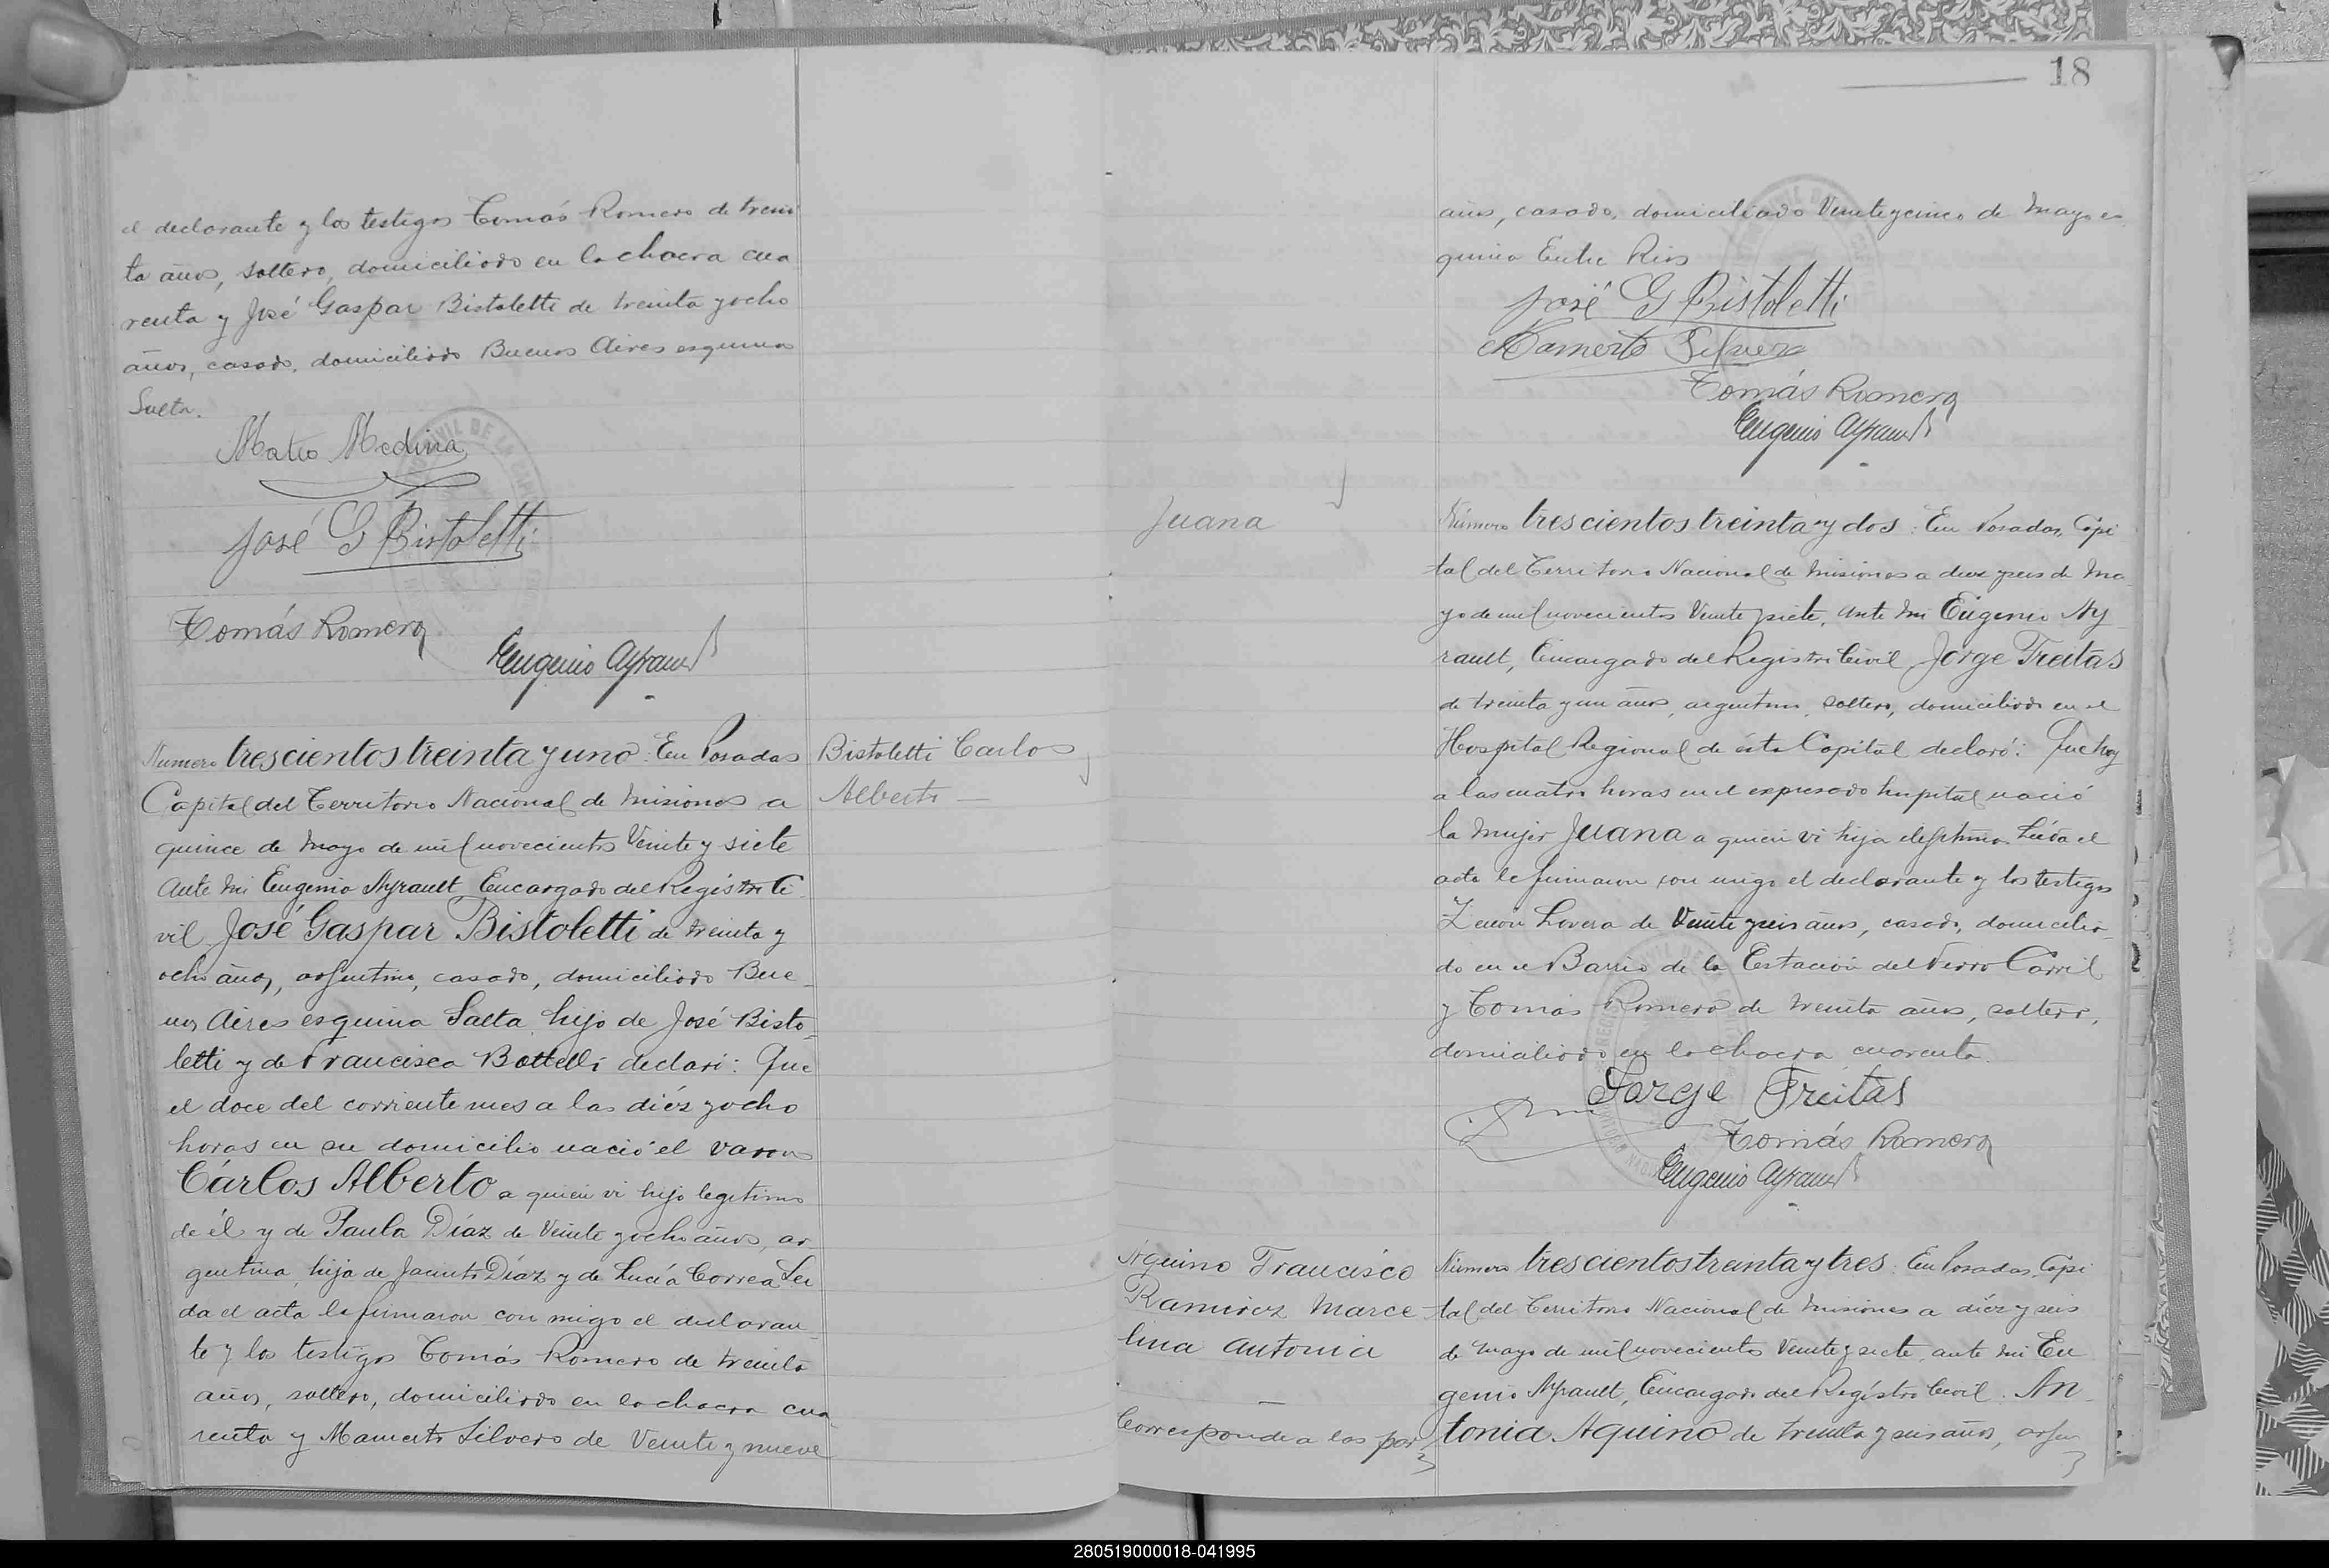 el declarante y los testigos Tomás Romero de trein
ta años, soltero, domiciliado en la chacra cua
renta y José Gaspar Bistoletti de treinta y ocho
años, casado, domiciliado Buenos Aires esquina
Salta.
Mateo Medina
José G Bistoletti
Tomás Romero
Eugenio Ayrault
Numero trescientos treinta y uno: En Posadas
Capital del Territorio Nacional de Misiones a
quince de Mayo de mil novecientos Veinte y siete
ante mi Eugenio Ayrault, Encargado del Registro Ci
vil José Gaspar Bistoletti de treinta y
ocho años, argentino, casado, domiciliado Bue
nos Aires esquina Salta, hijo de José Bisto
letti y de Francisca Bottelli declaró: Que
el doce del corriente mes a las diéz y ocho
horas en su domicilio nació el varon
Cárlos Alberto a quien vi hijo legitimo
de él y de Paula Díaz de Veinte y ocho años, ar
gentina, hija de Jacinto Díaz y de Lucía Correa Lei
da el acta la firmaron con migo el declaran
te y los testigos Tomás Romero de treinta
años, soltero, domiciliado en la chacra cua
renta y Mamerto Silvero de Veinte y nueve
Bistoletti Carlos
Alberto —
18
años, casado, domiciliado Veinte y cinco de Mayo es
quina Entre Rios
José G Bistoletti
Mamerto Silvero
Tomás Romero
Eugenio Ayrault
Juana
Número trescientos treinta y dos: En Posadas, Capi
tal del Territorio Nacional de Misiones a diez y seis de Ma
yo de mil novecientos Veinte y siete, ante mi Eugenio Ay
rault, Encargado del Registro Civil Jorge Freitas
de treinta y un años, argentino, soltero, domiciliado en el
Hospital Regional de ésta Capital declaró: Que hoy
a las cuatro horas en el expresado hospital nació
la mujer Juana a quien vi hija ilegítima. Leída el
acta la firmaron con migo el declarante y los testigos
Zenón Lovera de Veinte y seis años, casado, domicilia
do en el Barrio de la Estación del Ferro Carril
y Tomás Romero de treinta años, soltero,
domiciliado en la chacra cuarenta.
Jorge Freitas
Tomás Romero
Eugenio Ayrault
Aquino Francisco
Ramirez Marce
lina Antonia
—
Corresponde a las par
Número trescientos treinta y tres: En Posadas, Capi
tal del Territorio Nacional de Misiones a diéz y seis
de Mayo de mil novecientos Veinte y siete, ante mi Eu
genio Ayrault, Encargado del Regístro Civil. An
tonia Aquino de treinta y seis años, argen
280519000018-041995